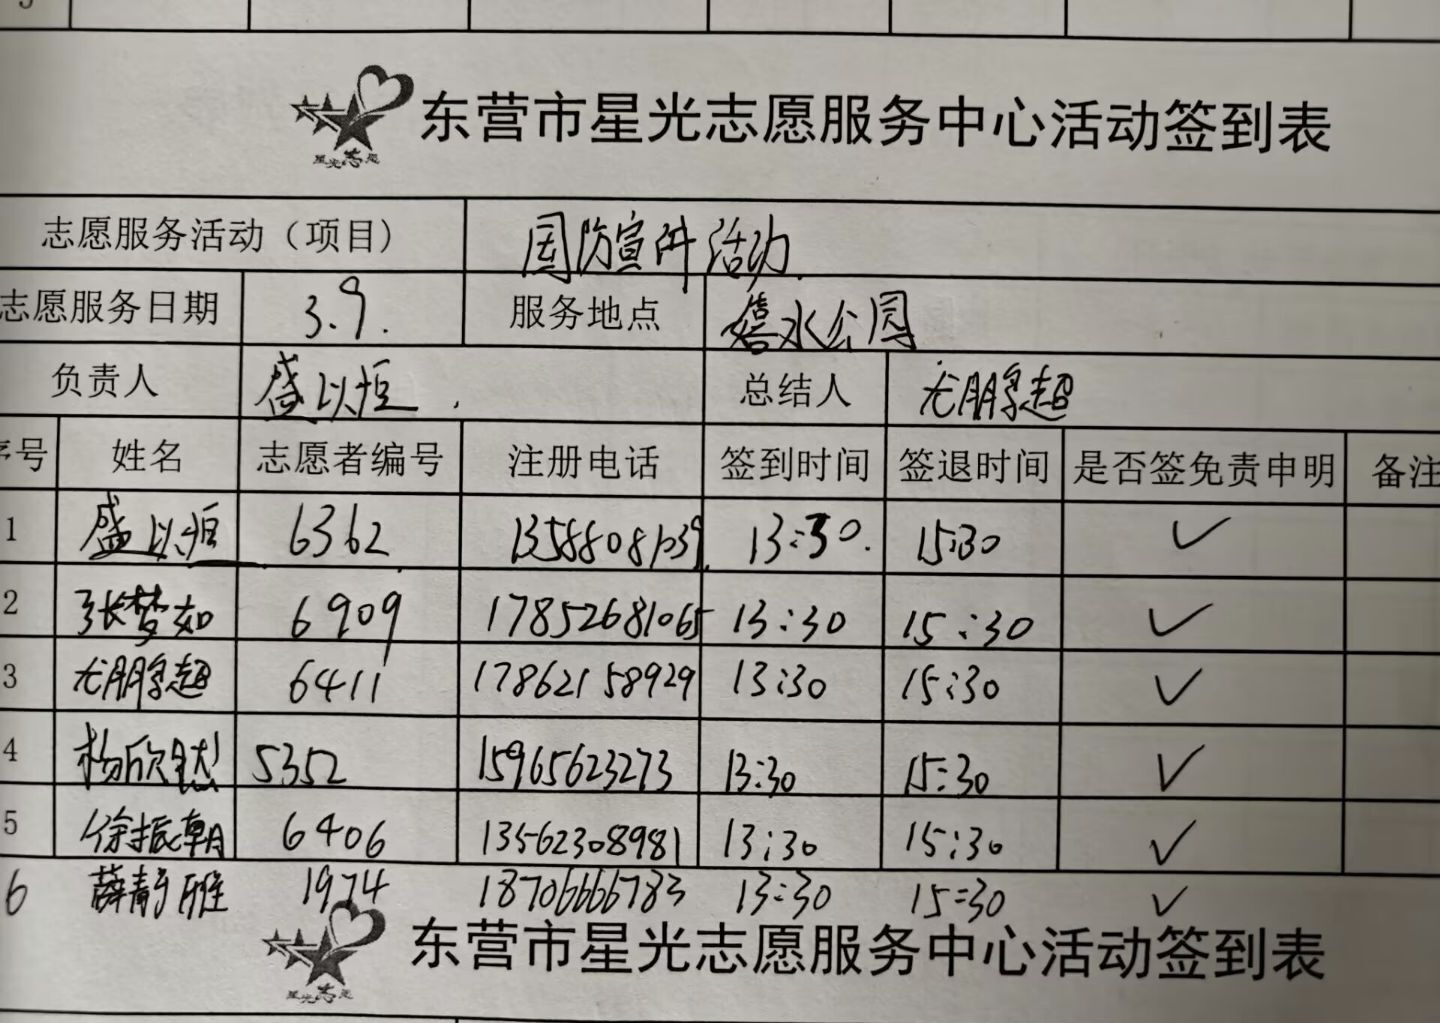 东营市星光志愿服务中心活动签到表
星光志愿
志愿服务活动（项目） 国防宣传活动
志愿服务日期 3.9. 服务地点 水公园
负责人 盛以恒. 总结人 尤鹏超
序号 姓名 志愿者编号 注册电话 签到时间 签退时间 是否签免责申明 备注
1 盛以恒 6362 13:30. 15:30 ✓
2 张梦如 6909 17852681065 13:30 15:30 ✓
3 尤鹏超 6411 17862158929 13:30 15:30 ✓
4 杨欣 5352 15965623273 13:30 15:30 ✓
5 徐振朝 6406 13562308981 13:30 15:30 ✓
6 薛静雅 1974 18706666783 13:30 15:30 ✓
东营市星光志愿服务中心活动签到表
星光志愿